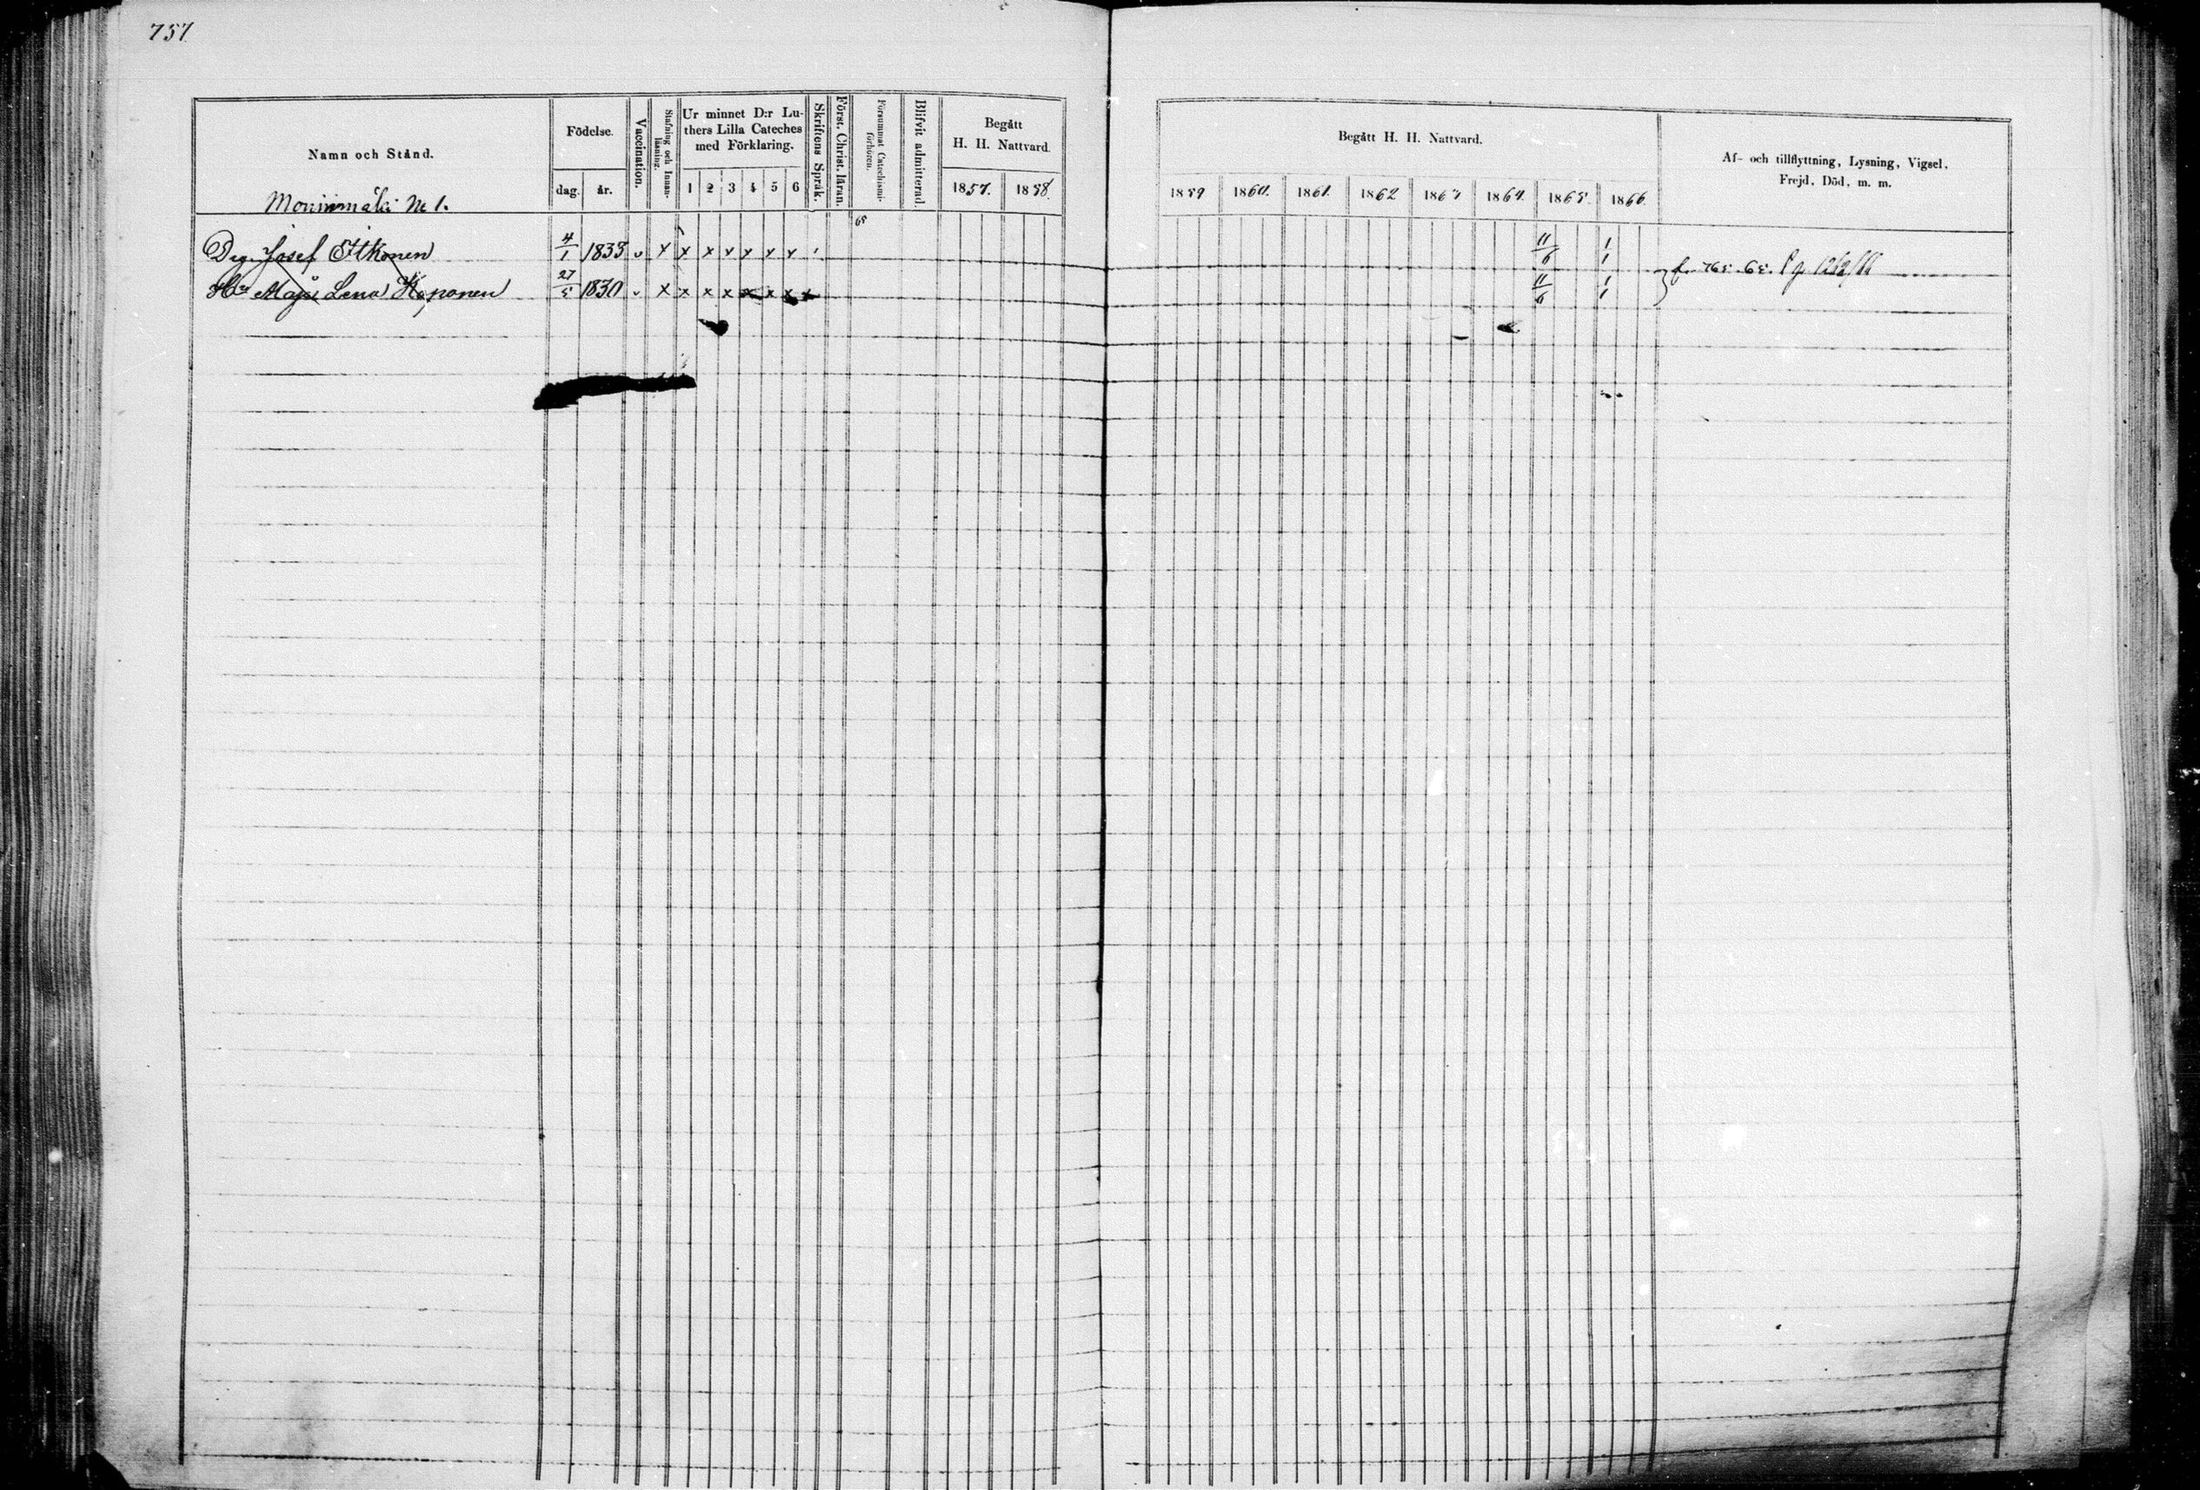 757
Namn och Stånd.
Födelse.
dag.
år.
Vaccination.
Stafning och Innan-
läsning.
Ur minnet D:r Lu-
thers Lilla Cateches
med Förklaring.
1 2 3 4 5 6
Skriftens Språk.
Först. Christ. läran.
Försummat Catechismi-
förhören.
Blifvit admitterad
Begått
H. H. Nattvard.
1857. 1858.
Begått H. H. Nattvard.
1859 1860. 1861. 1862 1863 1864. 1865. 1866
Af- och tillflyttning, Lysning, Vigsel,
Frejd, Död, m. m.
Moninmäki N 1.
65
Drg. Josef Itkonen 4/1 1833 v x x x v x x v 11/6 1/1
f. 765. 65.
Hu Maja Lena Koponen 27/5 1830 v x x x x x x x x 11/6 1/1